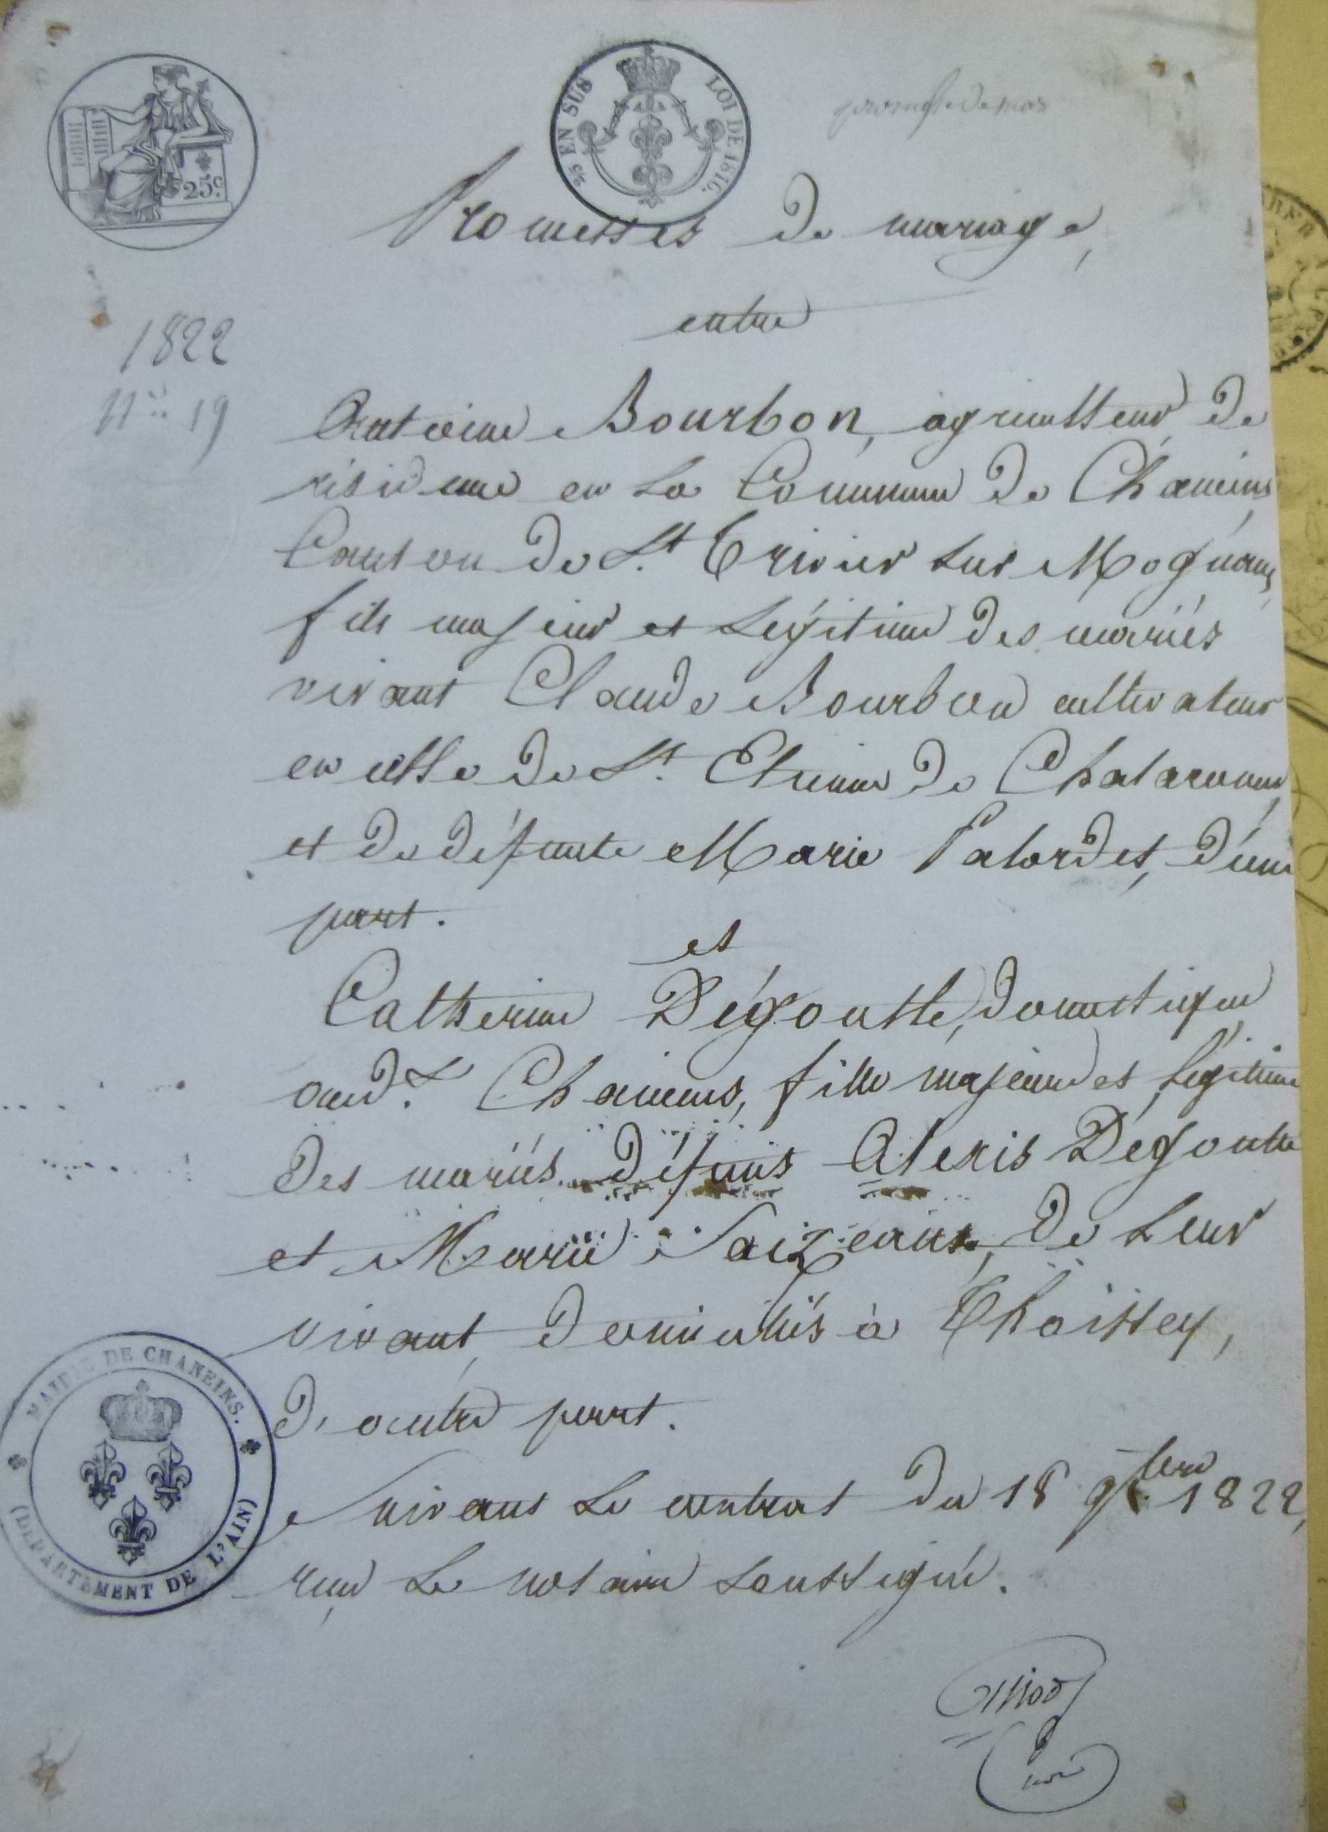 25 EN SUS LOI DE 1816.
25c.
promesse de mar
Promesses de mariage,
entre
1822
N° 19
Antoine Bourbon, agriculteur de
résidence en la Commune de Chaneins,
Canton de St. Trivier sur Mognans,
fils majeur et légitime des mariés
vivant Claude Bourbon cultivateur
en celle de St. Etienne de Chalaronne,
et de défunte Marie Palordet, d'une
part.
et
Catherine Dégoutte, domestique
aud. t Chaneins, fille majeure et légitime
des mariés défunts Alexis Dégoutte
et Marie Saizeaux, de leur
vivant domiciliés à Thoissey,
d'autre part.
Suivant le contrat du 18 9bre 1822,
reçu le notaire soussigné.
MAIRIE DE CHANEINS.
(DÉPARTEMENT DE L'AIN)